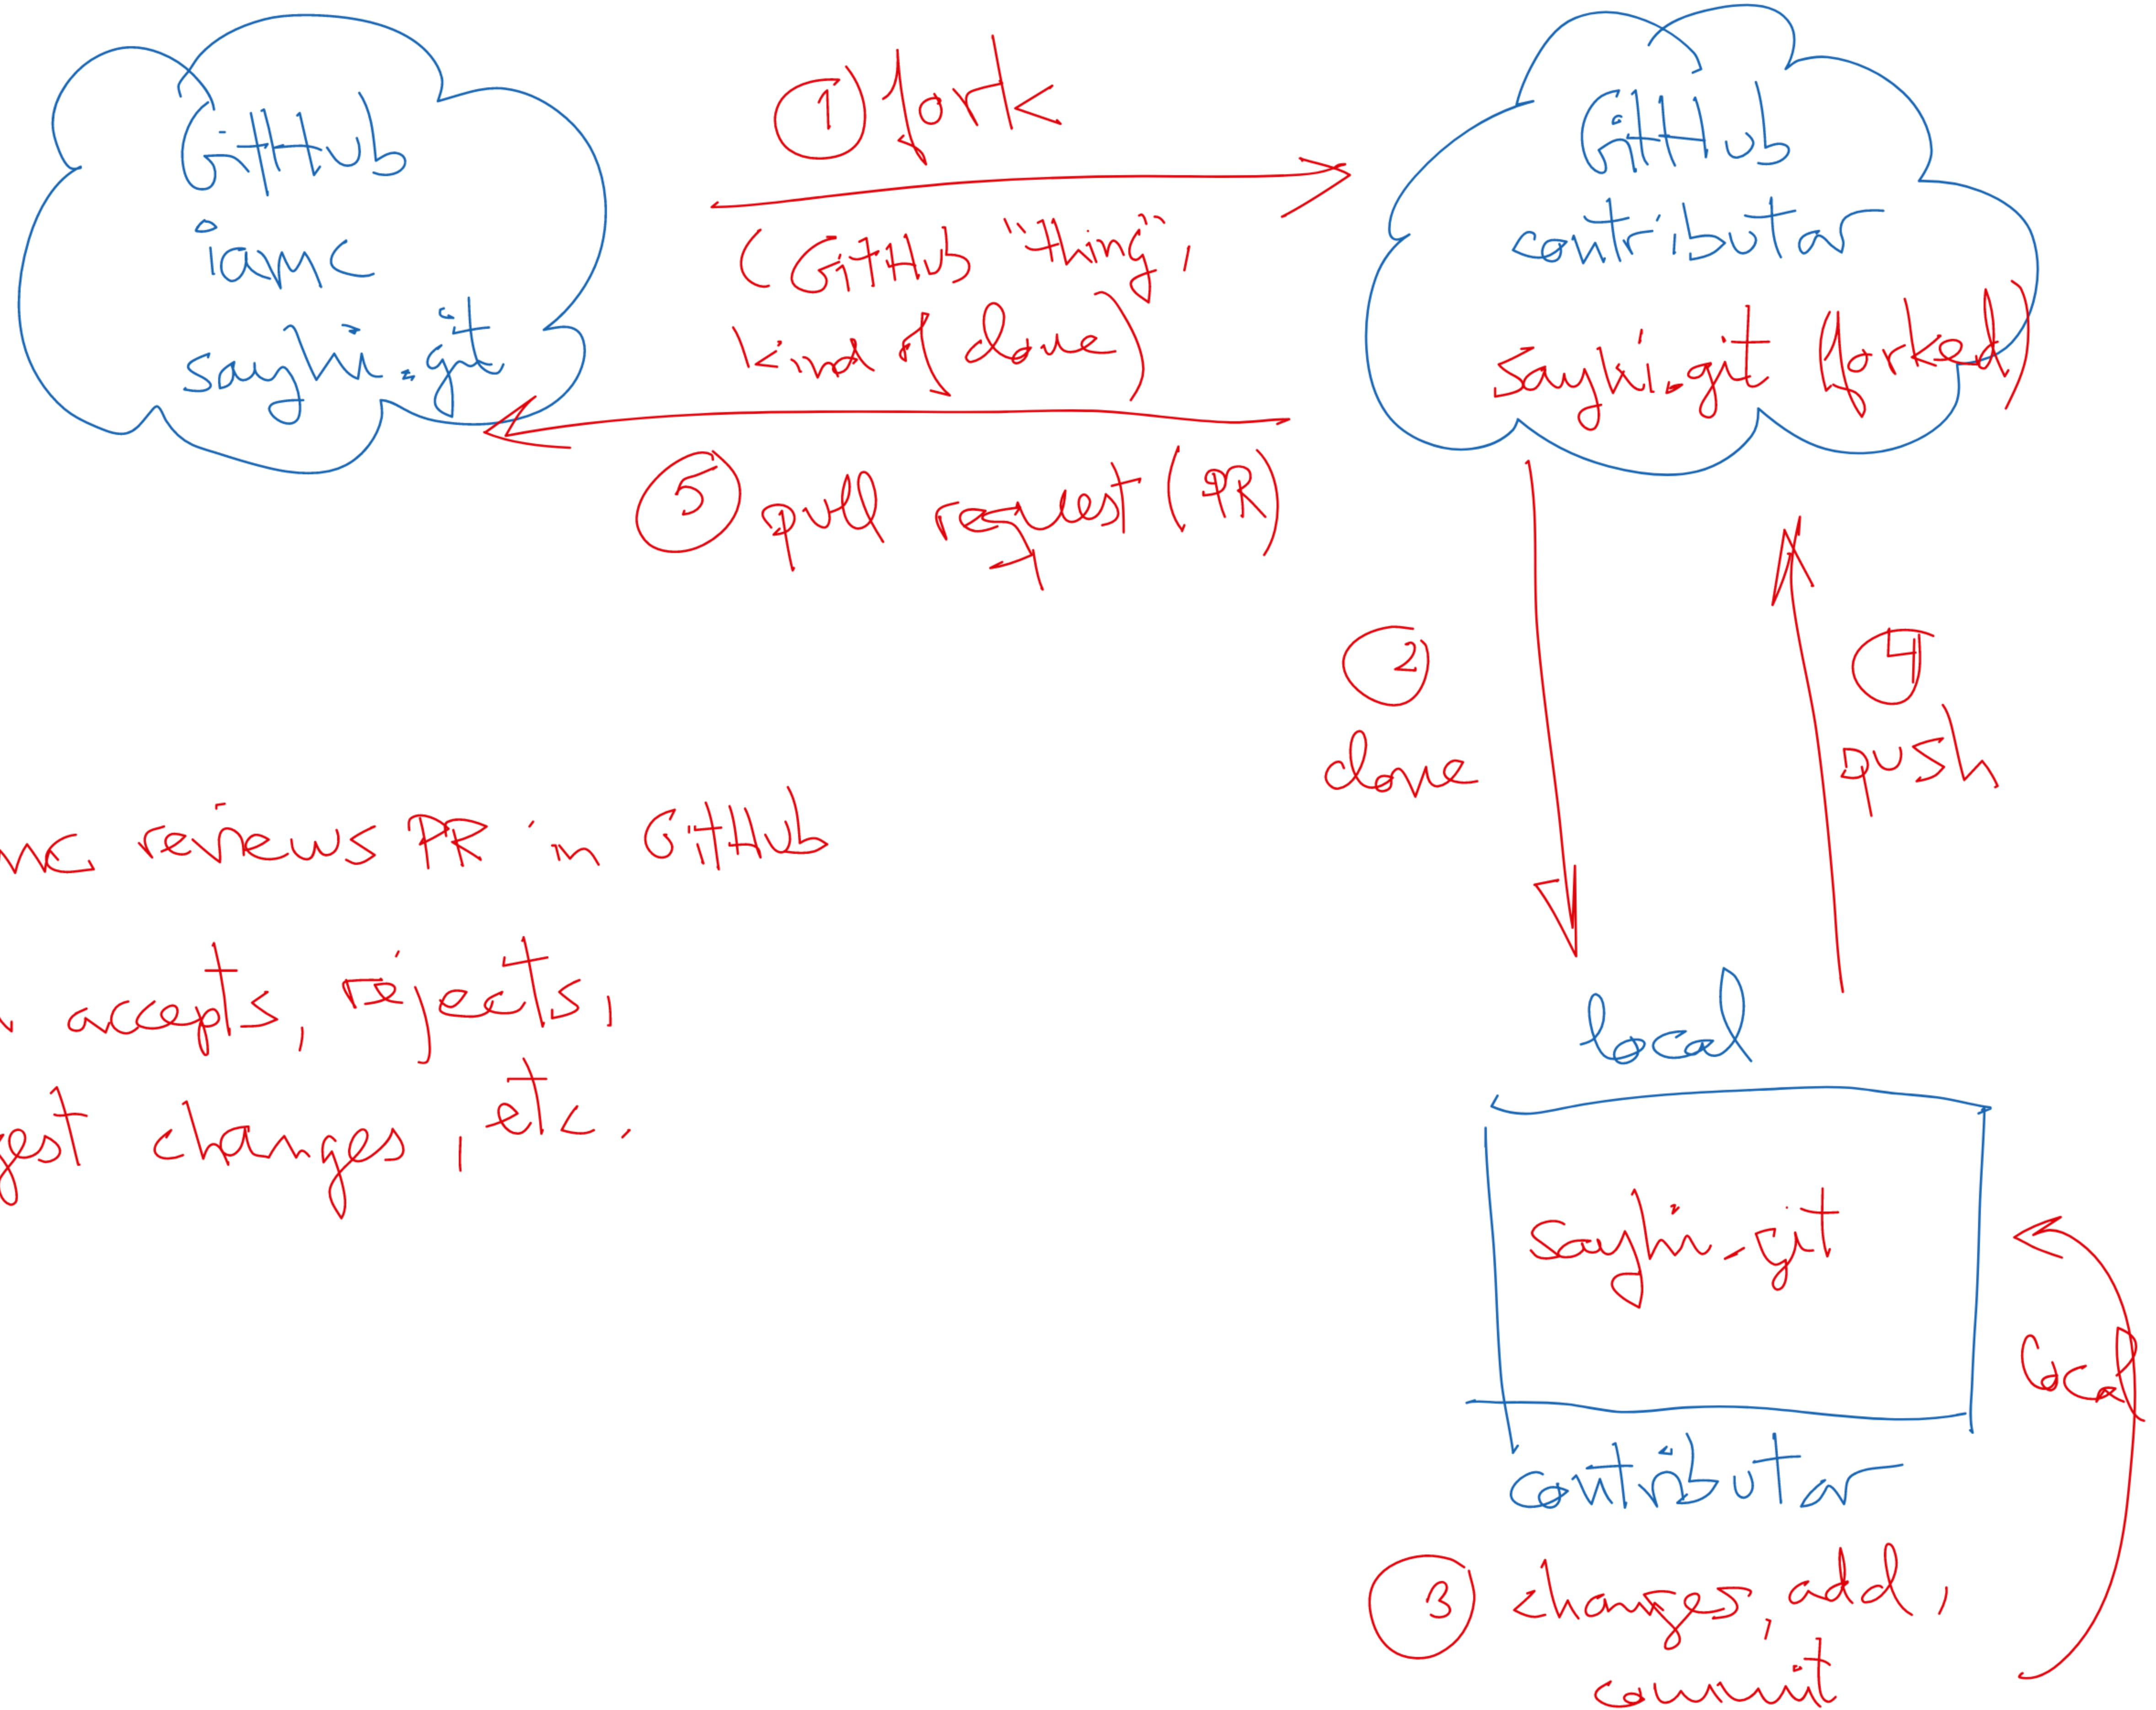 GitHub
ianmc
sayhii.git
1 fork
(GitHub "thing",
kind of clone)
GitHub
contributor
sayhii.git (forked)
5 pull request (PR)
2
clone
4
push
reviews PR in GitHub
accepts, rejects,
changes, etc.
local
sayhii.git
local
contributor
3 changes, add,
commit